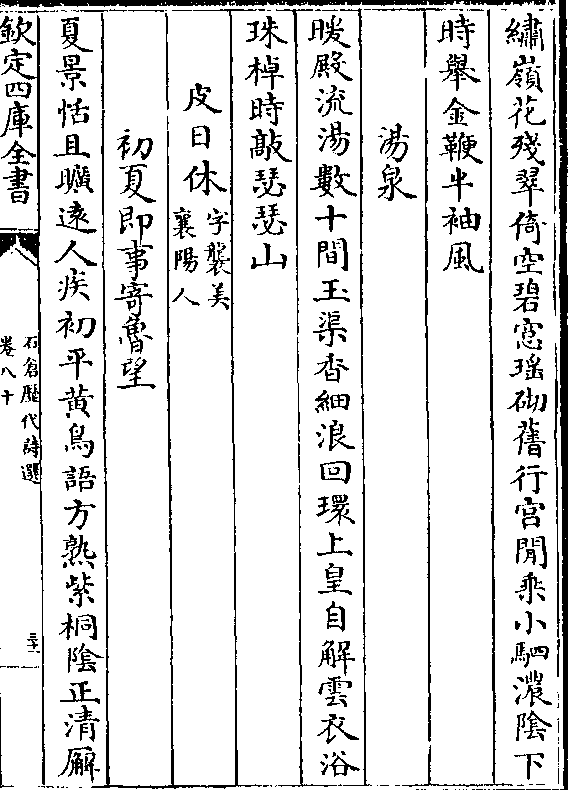 繡嶺花殘翠倚空碧窓瑶砌舊行宮閒乘小駟濃陰下
時舉金鞭半袖風
湯泉
暖殿流湯數十間玉渠香細浪回環上皇自解雲衣浴
珠棹時敲瑟瑟山
皮日休字襲美
襄陽人
初夏即事寄魯望
夏景恬且曠遠人疾初平黄鳥語方熟紫桐陰正清廨
欽定四庫全書
石倉歷代詩選
卷八十
三十一